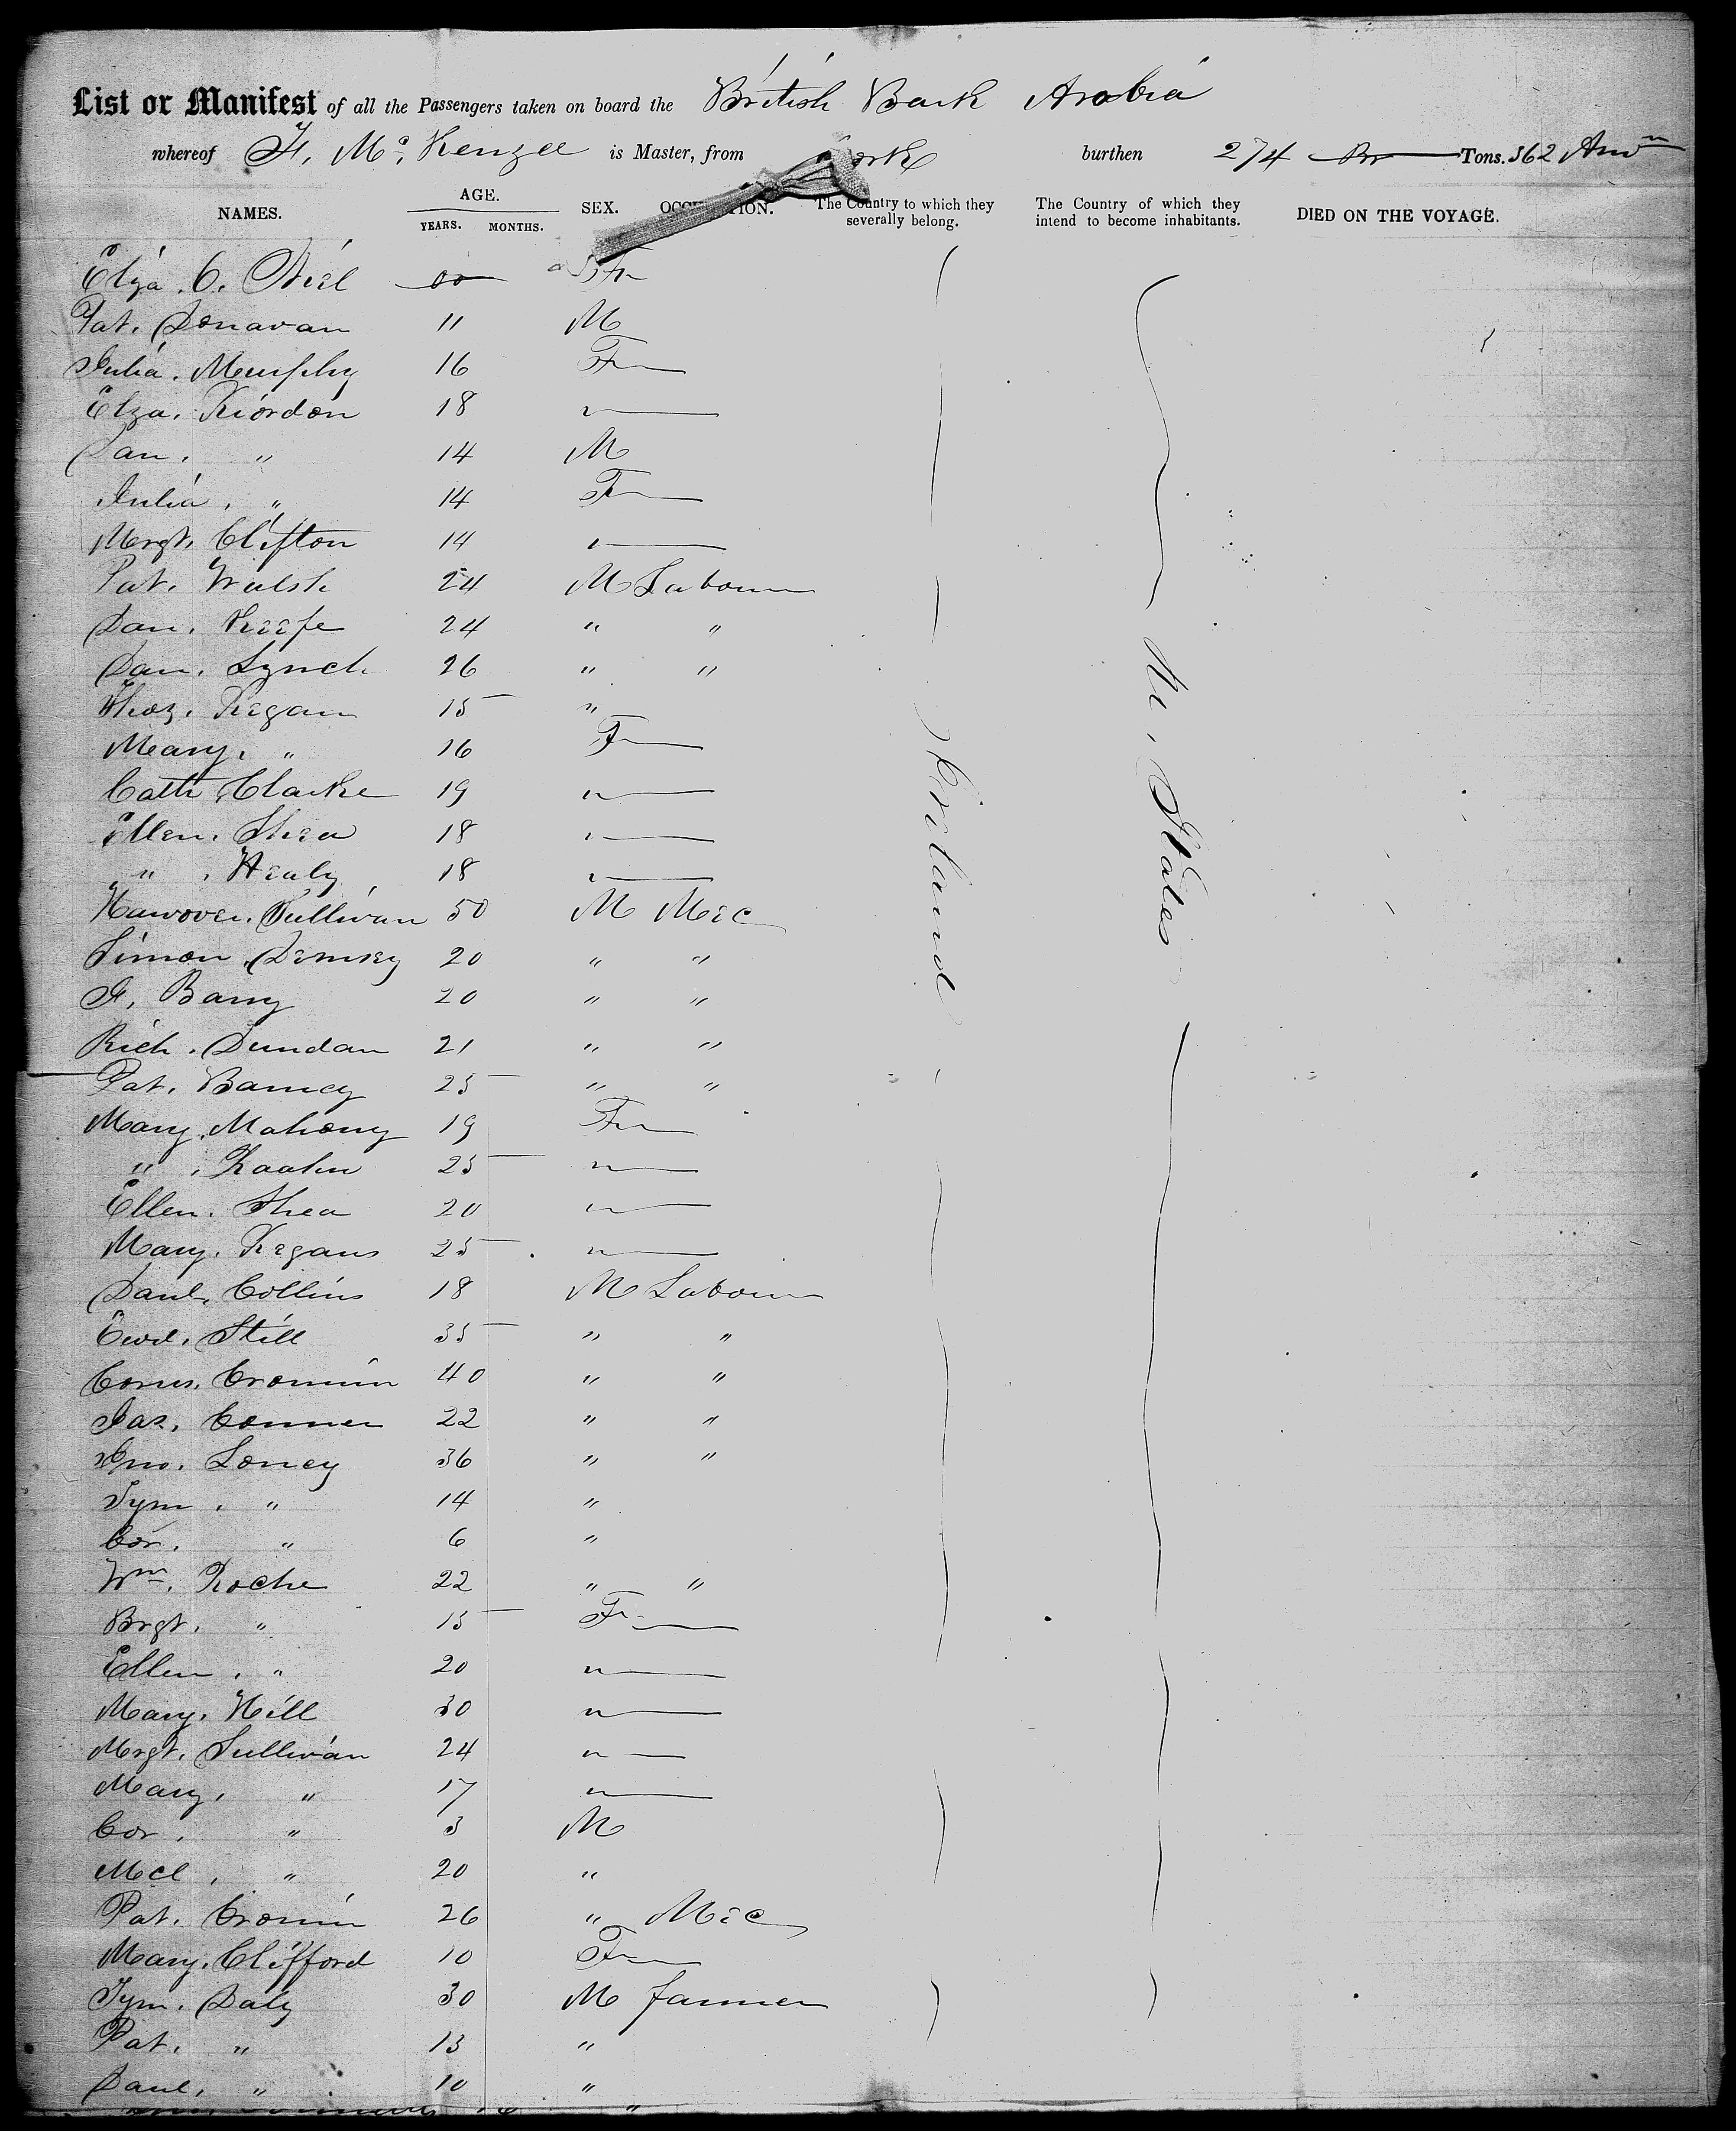 List or Manifest of all the Passengers taken on board the British Bark Arabia
whereof McKenzee is Master, from burthen 274 Tons. 362
NAMES. AGE. YEARS. MONTHS. SEX. The Country to which they severally belong. The Country of which they intend to become inhabitants. DIED ON THE VOYAGE.
Eliza O. Niel
Pat. Donavan 11 M
Julia. Murphy 16 F
Elza. Riordon 18 "
Dan. " 14 M
Julia. " 14 F
Mergt. Clifton 14 "
Pat. Walsh 24 M Labour
Dan. Keefe 24 " "
Dan. Lynch 26 " "
Thos. Regan 15 "
Mary. " 16 F
Cath Clarke 19 "
Ellen. Shea 18 "
" . Healy 18 "
Sullivan 50 M Mec
Simon. Demsey 20 " "
Barry 20 " "
Rich. Dundan 21 " "
Pat. 25 " "
Mary. Mahony 19 F
" . 25 "
Ellen. Shea 20 "
Mary. Regans 25 "
Danl. Collins 18 M Labour
Ewd. Still 35 " "
Corns. Cronnin 40 " "
Jas. Conner 22 " "
Jno. Loney 36 " "
Tym. " 14 "
Cor. " 6 "
Wm. Roche 22 " "
Brgt. " 15 F
Ellen. " 20 "
Mary. Hill 30 "
Mrgt. Sullivan 24 "
Mary. " 17 "
Cor. " 3 M
Mcl. " 20 "
Pat. Cronin 26 " Mec
Mary. Clifford 10 F
Tym. Daly 30 M farmer
Pat. " 13 "
Danl. " 10 "
Ireland
U. States